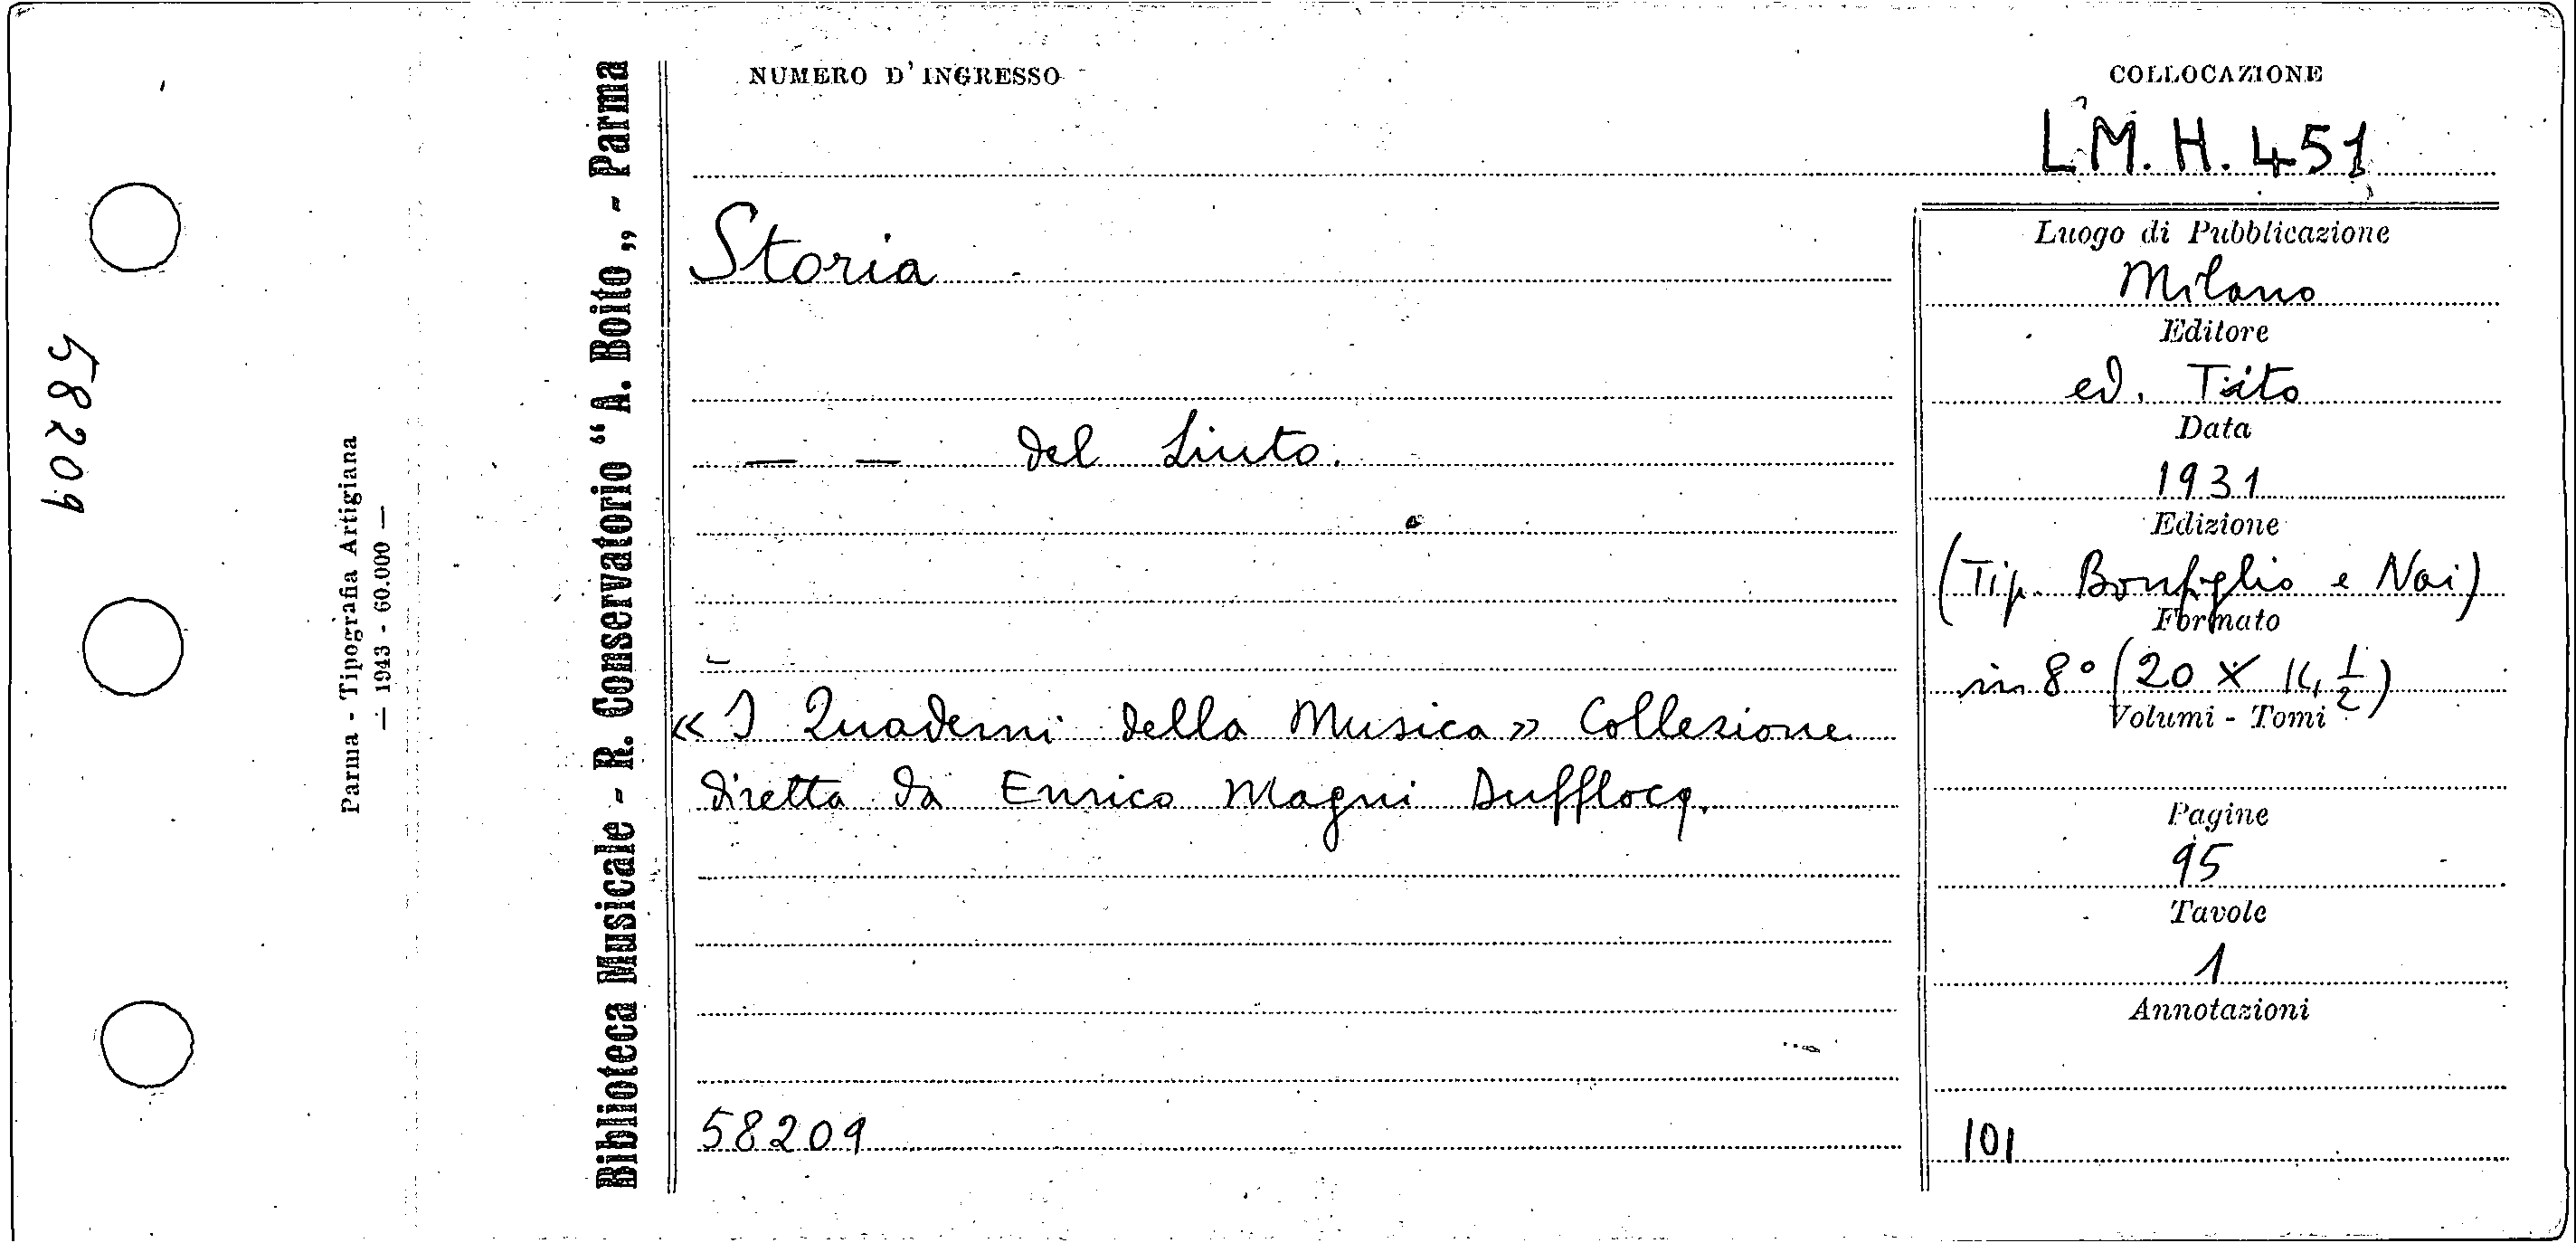 58209
Parma - Tipografia Artigiana
— 1943 - 60.000 —
Biblioteca Musicale - R. Conservatorio "A. Boito„ - Parma
NUMERO D'INGRESSO
COLLOCAZIONE
L.M. H. 451
Storia
— — del Liuto.
« I Quaderni della Musica » Collezione
diretta da Enrico Magni Dufflocq.
58209
Luogo di Pubblicazione
Milano
Editore
ed. Tito
Data
1931
Edizione
(Tip. Bonfiglio e Nai)
Formato
in 8° (20 × 14 ½)
Volumi - Tomi
Pagine
95
Tavole
1
Annotazioni
101